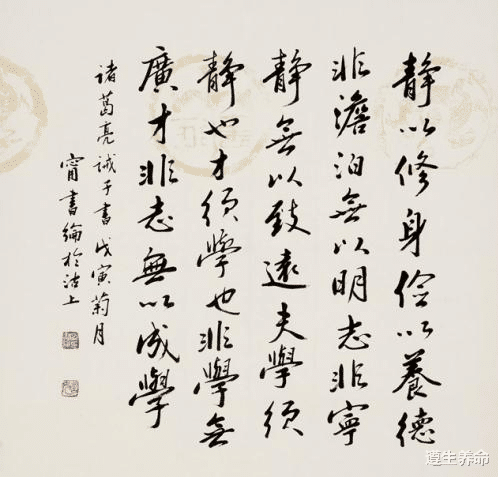 静以修身儉以養德
非澹泊無以明志非寧
靜無以致遠夫學須
靜也才須學也非學無以
廣才非志無以成學
諸葛亮誡子書戊寅菊月
甯書綸於沽上
遵生养命